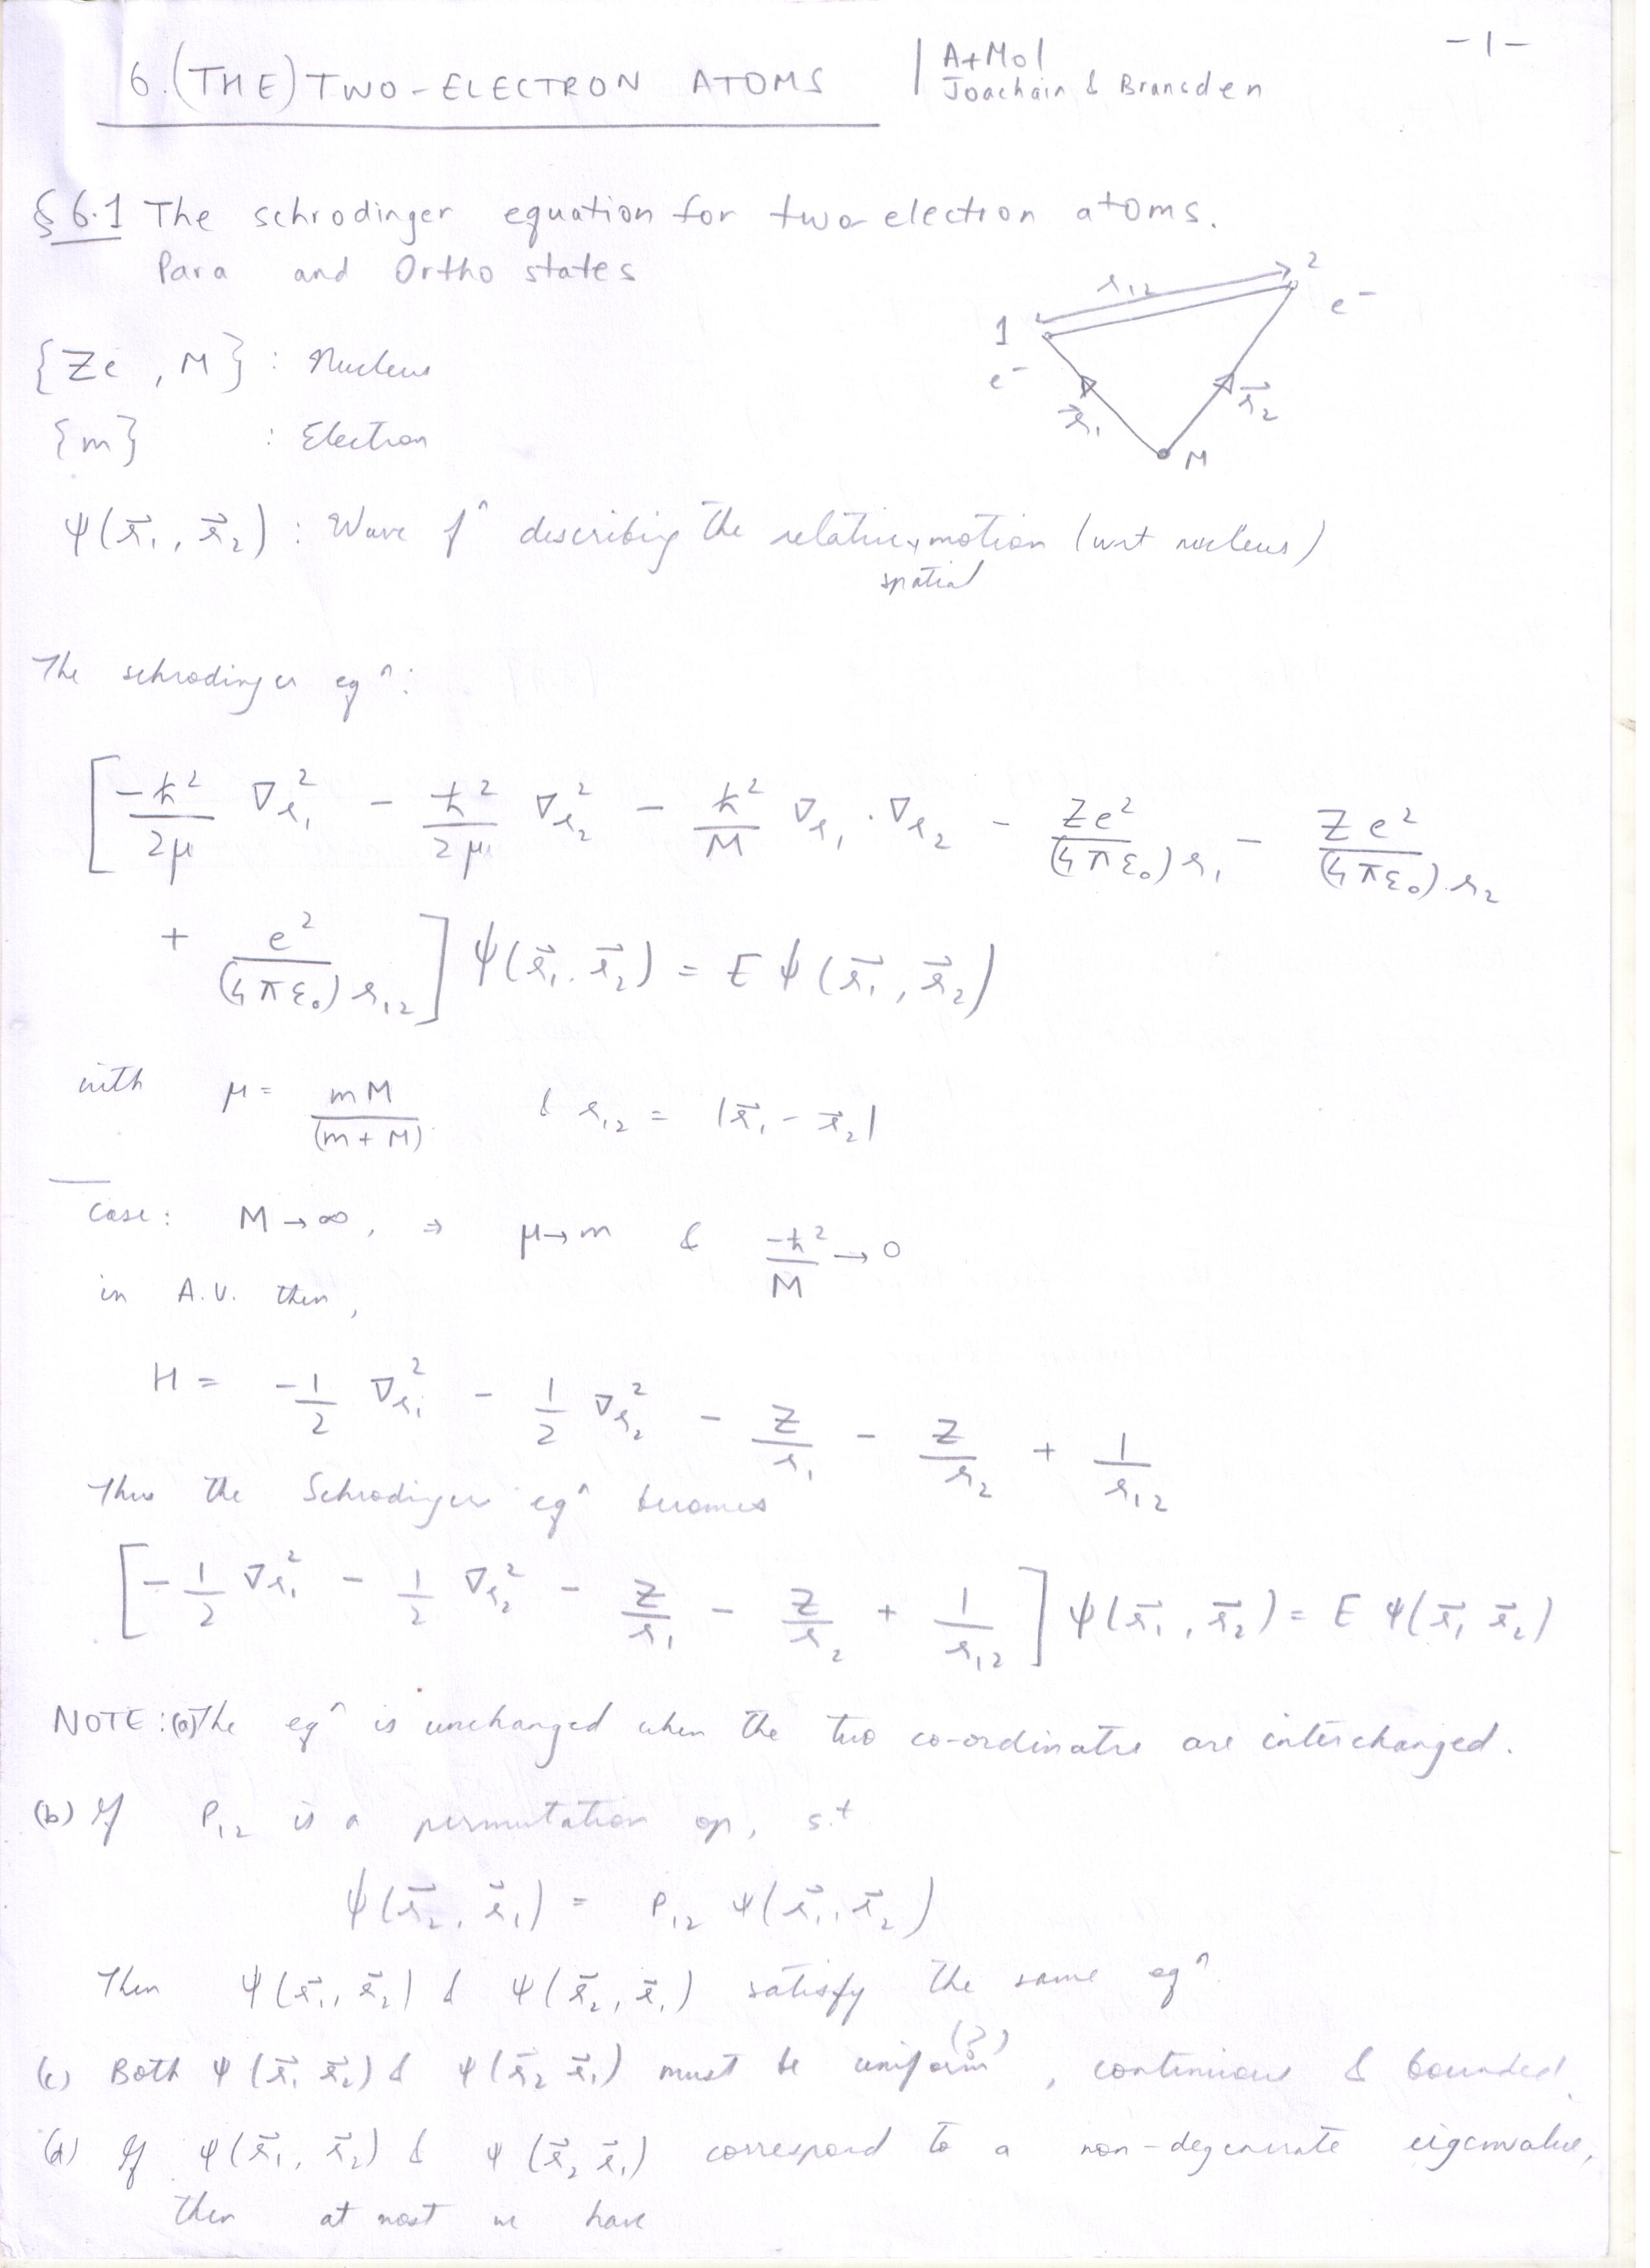 6. (THE) TWO-ELECTRON ATOMS
A+Mol
Joachain & Bransden
-1-
§ 6.1 The schrodinger equation for two electron atoms.
Para and Ortho states
1 e⁻ r₁₂ 2 e⁻
r⃗₁ r⃗₂ M
{Ze, M} : Nucleus
{m} : Electron
ψ(r⃗₁, r⃗₂) : Wave fⁿ describing the relative spatial motion (wrt nucleus)
The schrodinger eqⁿ:
[ -ℏ²/2μ ∇²r₁ - ℏ²/2μ ∇²r₂ - ℏ²/M ∇r₁ · ∇r₂ - Ze²/(4πε₀)r₁ - Ze²/(4πε₀)r₂
+ e²/(4πε₀)r₁₂ ] ψ(r⃗₁, r⃗₂) = E ψ(r⃗₁, r⃗₂)
with μ = mM/(m+M) & r₁₂ = |r⃗₁ - r⃗₂|
Case: M → ∞, ⇒ μ → m & -ℏ²/M → 0
in A.U. then,
H = -1/2 ∇²r₁ - 1/2 ∇²r₂ - Z/r₁ - Z/r₂ + 1/r₁₂
Thus the Schrodinger eqⁿ becomes
[ -1/2 ∇²r₁ - 1/2 ∇²r₂ - Z/r₁ - Z/r₂ + 1/r₁₂ ] ψ(r⃗₁, r⃗₂) = E ψ(r⃗₁ r⃗₂)
NOTE: (a) The eqⁿ is unchanged when the two co-ordinates are interchanged.
(b) If P₁₂ is a permutation op, s.t
ψ(r⃗₂, r⃗₁) = P₁₂ ψ(r⃗₁, r⃗₂)
Then ψ(r⃗₁, r⃗₂) & ψ(r⃗₂, r⃗₁) satisfy the same eqⁿ.
(c) Both ψ(r⃗₁ r⃗₂) & ψ(r⃗₂ r⃗₁) must be uniform (?), continuous & bounded.
(d) If ψ(r⃗₁, r⃗₂) & ψ(r⃗₂ r⃗₁) correspond to a non-degenerate eigenvalue,
then at most we have